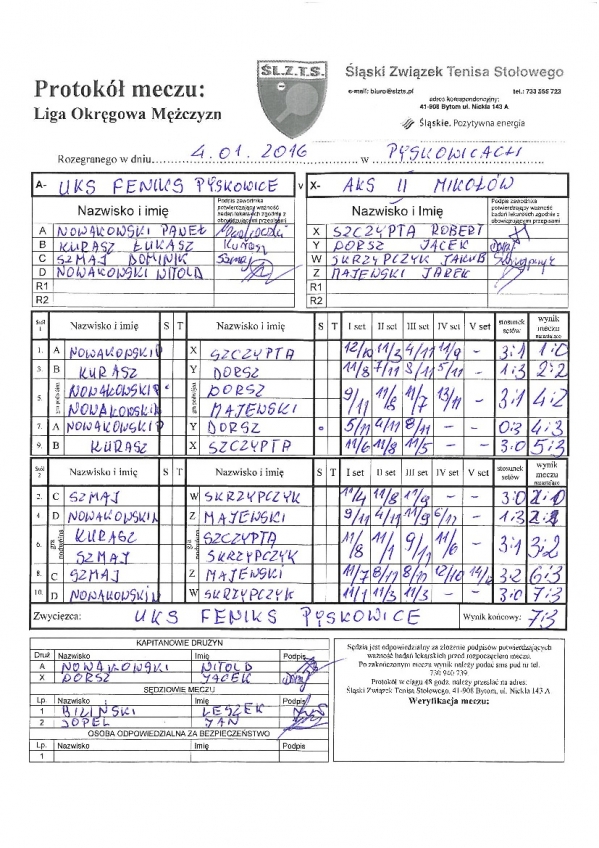 ŚL.Z.T.S.
Protokół meczu:
Liga Okręgowa Mężczyzn
Śląski Związek Tenisa Stołowego
e-mail: biuro@slzts.pl tel.: 733 566 723
adres korespondencyjny:
41-908 Bytom, ul. Nickla 143 A
Śląskie. Pozytywna energia
Rozegranego w dniu 4.01.2016 w PYSKOWICACH
A- UKS FENIKS PYSKOWICE v X- AKS II MIKOŁÓW
Nazwisko i Imię Podpis zawodnika potwierdzający ważność badań lekarskich zgodnie z obowiązującymi przepisami Nazwisko i Imię Podpis zawodnika potwierdzający ważność badań lekarskich zgodnie z obowiązującymi przepisami
A NOWAKOWSKI PAWEŁ X SZCZYPTA ROBERT
B KURASZ ŁUKASZ Kurasz Y DORSZ JACEK
C SZMAJ DOMINIK Szmaj W SKRZYPCZYK JAKUB
D NOWAKOWSKI WITOLD Z MAJEWSKI JAREK
R1 R1
R2 R2
Stół 1 Nazwisko i imię S T Nazwisko i imię S T I set II set III set IV set V set stosunek setów wynik meczu narastająco
1. A NOWAKOWSKI P X SZCZYPTA 12/10 11/3 4/11 11/9 - 3:1 1:0
3. B KURASZ Y DORSZ 11/8 7/11 8/11 5/11 - 1:3 2:2
5. gra podwójna NOWAKOWSKI P gra podwójna DORSZ 9/11 11/8 11/7 13/11 - 3:1 4:2
NOWAKOWSKI W MAJEWSKI
7. A NOWAKOWSKI P Y DORSZ 5/11 4/11 8/11 - - 0:3 4:3
9. B KURASZ X SZCZYPTA 11/6 11/8 11/5 - - 3:0 5:3
Stół 2 Nazwisko i imię S T Nazwisko i imię S T I set II set III set IV set V set stosunek setów wynik meczu narastająco
2. C SZMAJ W SKRZYPCZYK 11/4 11/8 11/9 - - 3:0 2:0
4. D NOWAKOWSKI W Z MAJEWSKI 9/11 4/11 11/9 6/11 - 1:3
6. gra podwójna KURASZ gra podwójna SZCZYPTA 11/8 11/1 9/11 11/6 - 3:1 3:2
SZMAJ SKRZYPCZYK
8. C SZMAJ Z MAJEWSKI 11/7 12/10 3:2 6:3
10. D NOWAKOWSKI W W SKRZYPCZYK 11/1 11/3 11/3 - - 3:0 7:3
Zwycięzca: UKS FENIKS PYSKOWICE Wynik końcowy: 7:3
KAPITANOWIE DRUŻYN
Druż Nazwisko Imię Podpis
A NOWAKOWSKI WITOLD
X DORSZ JACEK
SĘDZIOWIE MECZU
Lp. Nazwisko Imię Podpis
1 BILIŃSKI LESZEK
2 JOPEL JAN
OSOBA ODPOWIEDZIALNA ZA BEZPIECZEŃSTWO
Lp. Nazwisko Imię Podpis
1
Sędzia jest odpowiedzialny za złożenie podpisów potwierdzających
ważność badań lekarskich przed rozpoczęciem meczu.
Po zakończonym meczu wynik należy podać sms pod nr tel.
730 940 739.
Protokół w ciągu 48 godz. należy przesłać na adres:
Śląski Związek Tenisa Stołowego, 41-908 Bytom, ul. Nickla 143 A
Weryfikacja meczu: